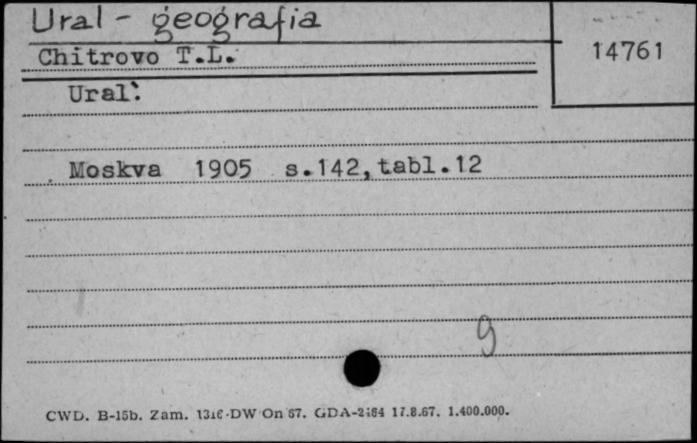 Ural - geografia
14761
Chitrovo T.L.
Ural:
Moskva 1905 s.142,tabl.12
9
CWD. B-15b. Zam. 1316-DW On 67. GDA-2464 17.8.67. 1.400.000.